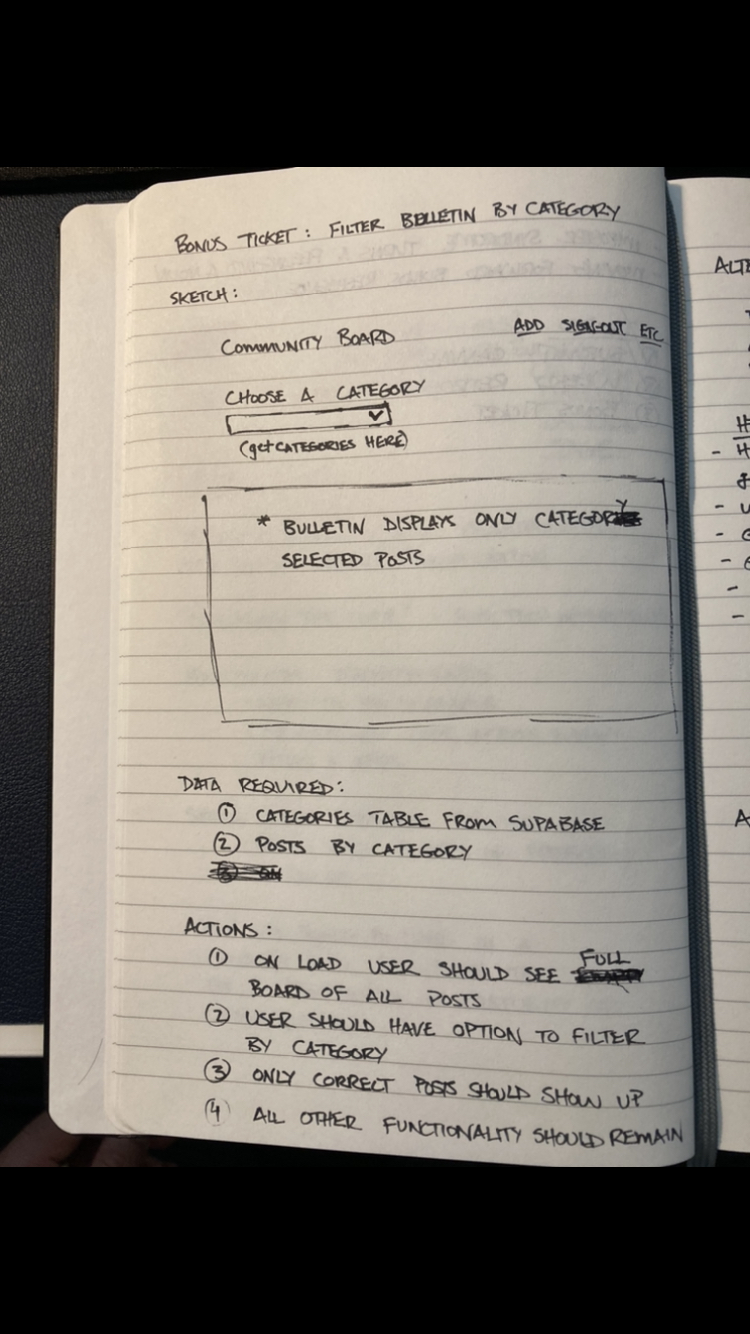 BONUS TICKET: FILTER BELLETIN BY CATEGORY
SKETCH:
COMMUNITY BOARD
ADD SIGNOUT ETC
CHOOSE A CATEGORY
(get CATEGORIES HERE)
* BULLETIN DISPLAYS ONLY CATEGORY
SELECTED POSTS
DATA REQUIRED:
① CATEGORIES TABLE FROM SUPABASE
② POSTS BY CATEGORY
ACTIONS:
① ON LOAD USER SHOULD SEE FULL
BOARD OF ALL POSTS
② USER SHOULD HAVE OPTION TO FILTER
BY CATEGORY
③ ONLY CORRECT POSTS SHOULD SHOW UP
④ ALL OTHER FUNCTIONALITY SHOULD REMAIN